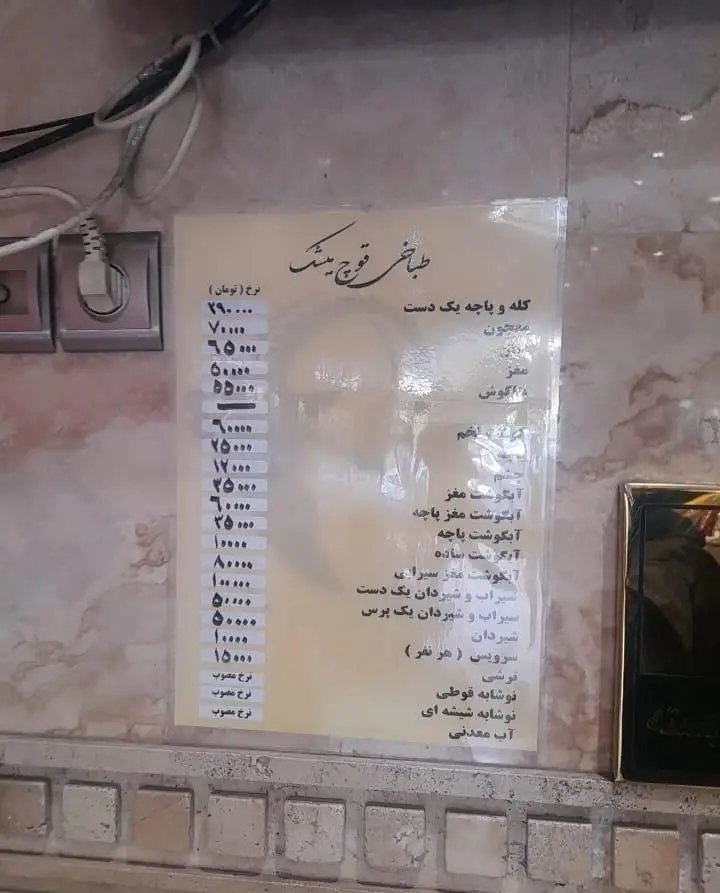 طباخی قوچ میشک
نرخ ( تومان )
کله و پاچه یک دست ۳۹۰۰۰۰
معجون ۷۰۰۰۰
۶۵۰۰۰
مغز ۵۰۰۰۰
بناگوش ۵۵۰۰۰
لخم ۶۰۰۰۰
۳۵۰۰۰
چشم ۱۲۰۰۰
آبگوشت مغز ۳۵۰۰۰
آبگوشت مغز پاچه ۶۰۰۰۰
آبگوشت پاچه ۳۵۰۰۰
آبگوشت ساده ۱۰۰۰۰
آبگوشت مغز سیرابی ۸۰۰۰۰
سیراب و شیردان یک دست ۱۰۰۰۰۰
سیراب و شیردان یک پرس ۵۰۰۰۰
شیردان ۵۰۰۰۰
سرویس ( هر نفر ) ۱۰۰۰۰
ترشی ۱۵۰۰۰
نوشابه قوطی نرخ مصوب
نوشابه شیشه ای نرخ مصوب
آب معدنی نرخ مصوب